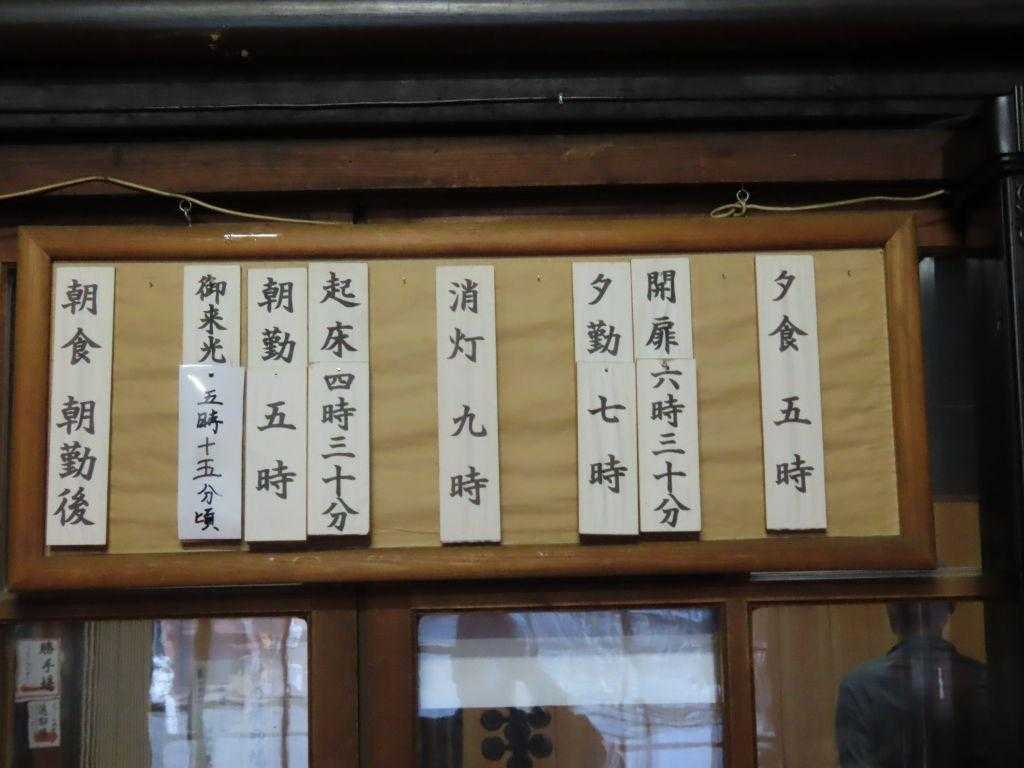 夕食 五時
開扉 六時三十分
夕勤 七時
消灯 九時
起床 四時三十分
朝勤 五時
御来光・五時十五分頃
朝食 朝勤後
勝手